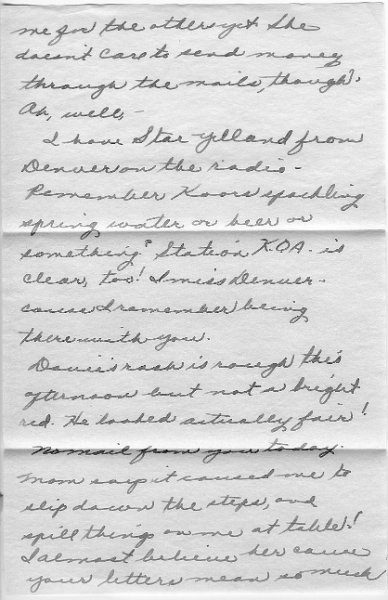 me for the others yet. She
doesn't care to send money
through the mails, though.
Ah, well, -
I have Star Yelland from
Denver on the radio -
Remember Koors sparkling
spring water or beer or
something? Station KOA - is
clear, too! I miss Denver -
cause I remember being
there with you.
Davie's rash is rough this
afternoon but not a bright
red. He looked actually fair!
No mail from you today.
Mom says it caused me to
slip down the steps, and
spill things on me at table!
I almost believe her cause
your letters mean so much